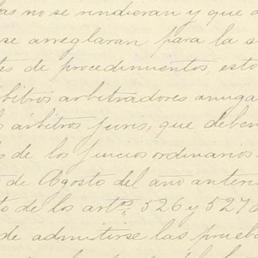 las no se rindieran y que d
se arreglaran para la s
tes de procedimientos esto
árbitros arbitradores amiga
s árbitros juris, que deben
s de los juicios ordinarios
de Agosto del año anteri
to de los artos. 526 y 527 d
de admitirse las prueba